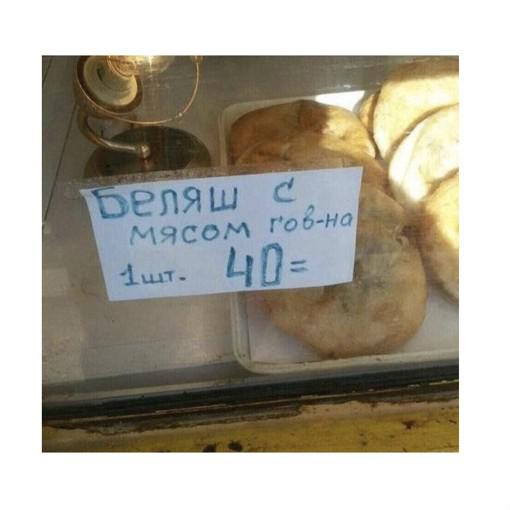 Беляш с
мясом гов-на
1 шт. 40=